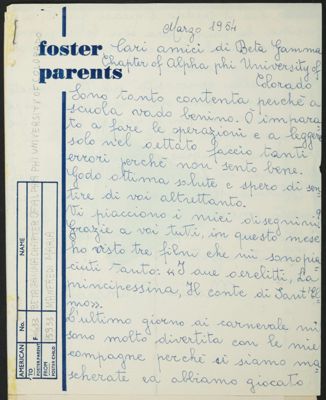 Marzo 1964
foster
parents
Cari amici di Beta Gamma
Chapter of Alpha phi University of
Colorado
Sono tanto contenta perché a
scuola vado benino. O impara
to a fare le operazioni e a leggere
solo nel dettato faccio tanti
errori perché non sento bene.
Godo ottima salute e spero di sen
tire di voi altrettanto.
Vi piacciono i miei disegnini?
Grazie a voi tutti, in questo mese
ho visto tre film che mi sono pia
ciuti tanto: "I due
principessina, Il conte di Sant'El
mo".
L'ultimo giorno di carnevale mi
sono molto divertita con le mie
compagne perché ci siamo ma
scherate ed abbiamo giocato
AMERICAN No. NAME
TO FOSTER PARENT BETA GAMMA CHAPTER OF ALPHA PHI UNIVERSITY OF COLORADO
FROM FOSTER CHILD MANFREDI MARIA